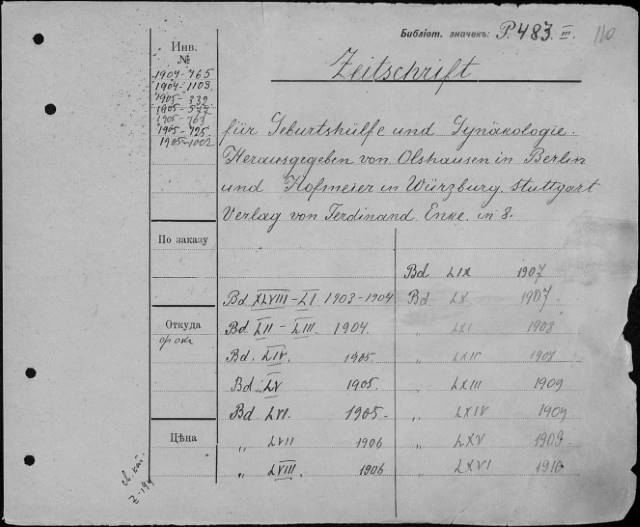 Библіот. значекъ: P.483. III. 110
Инв.
№№
1904-765
1904-1103
1905-339
1905-577
1905-763
1905-925
1905-1002
Zeitschrift
für Geburtshülfe und Gynäkologie.
Herausgegeben von Olshausen in Berlin
und Hofmeier in Würzburg. Stuttgart
Verlag von Ferdinand Enke. in 8.
По заказу
Bd LIX 1907
Bd XLVIII-LI 1903-1904 Bd LX 1907
Откуда Bd LII-LIII. 1904. „ LXI 1908
Bd. LIV. 1905. „ LXII 1908
Bd LV 1905. „ LXIII 1909
Bd LVI. 1905. „ LXIV 1909
Цѣна „ LVII 1906 „ LXV 1909
„ LVIII. 1906 „ LXVI 1910